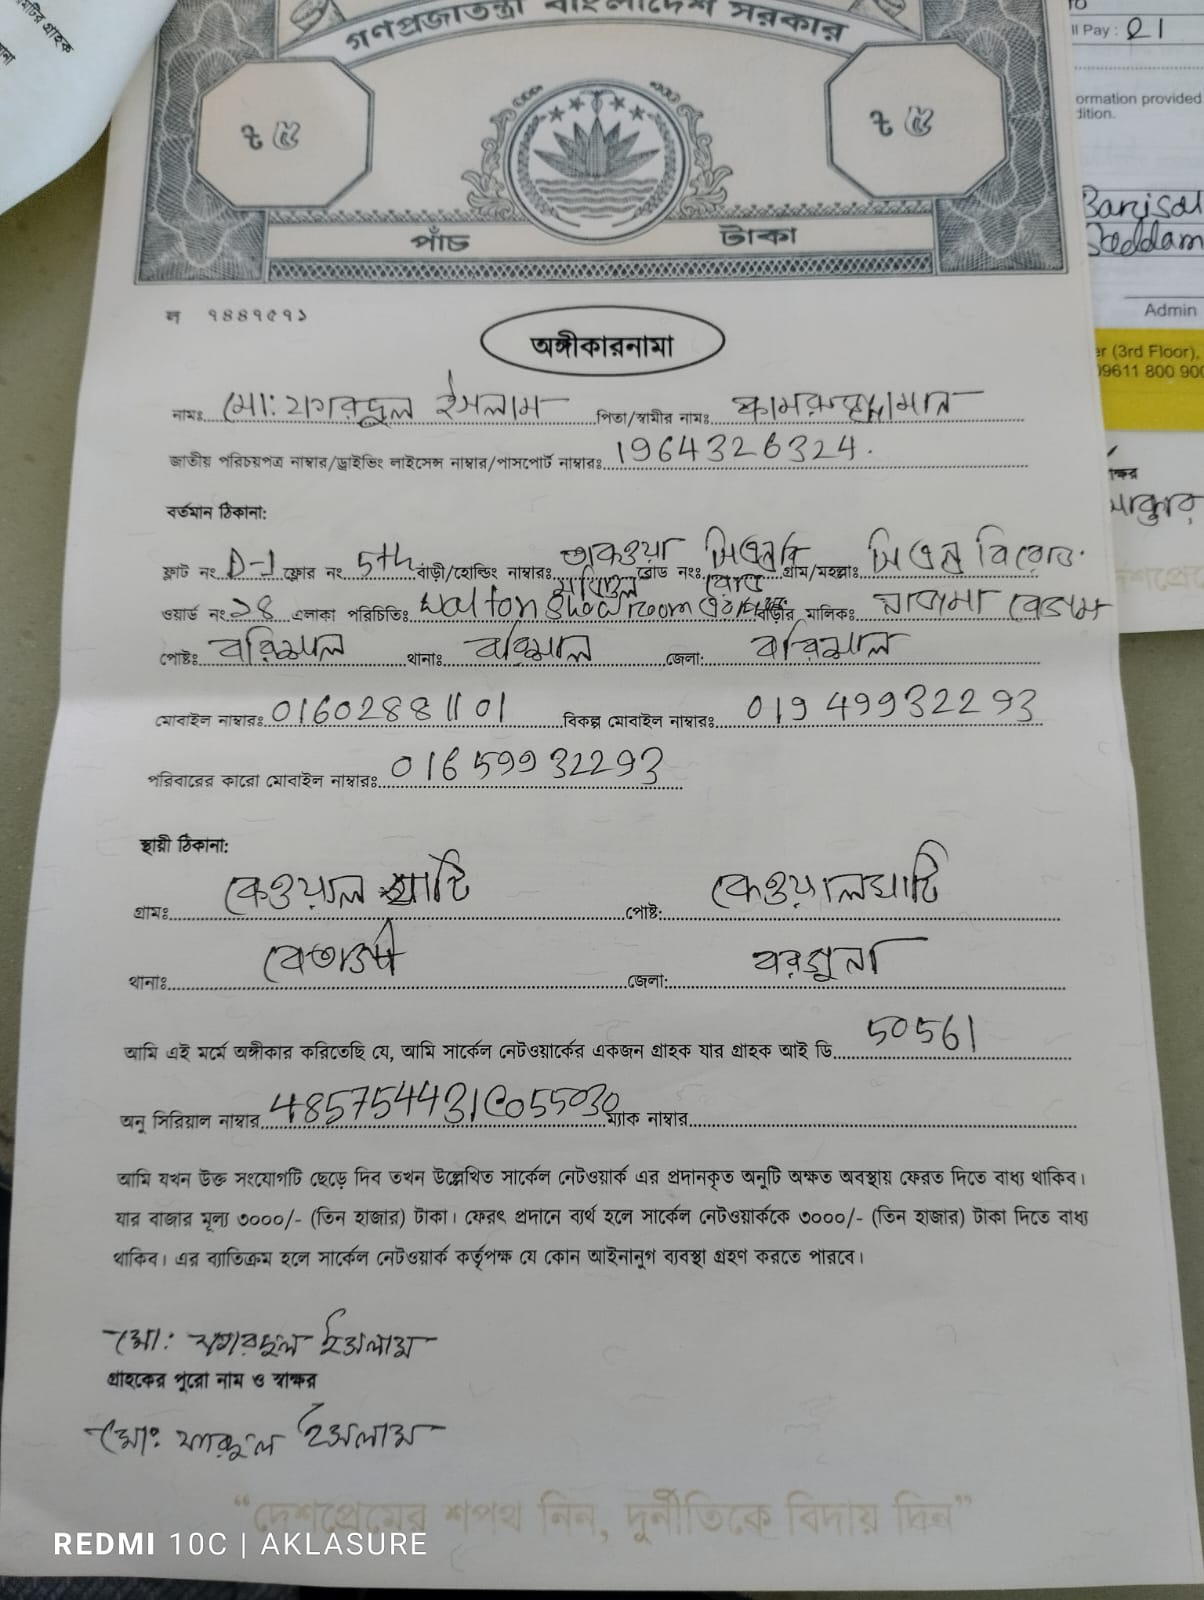 গণপ্রজাতন্ত্রী বাংলাদেশ সরকার
৳ ৫
৳ ৫
পাঁচ টাকা
ল ৭৪৪৭৫৭১
অঙ্গীকারনামা
নামঃ মো: ইসলাম পিতা/স্বামীর নামঃ
জাতীয় পরিচয়পত্র নাম্বার/ড্রাইভিং লাইসেন্স নাম্বার/পাসপোর্ট নাম্বারঃ 1964326324.
বর্তমান ঠিকানা:
ফ্লাট নং D-1 ফ্লোর নং 5th বাড়ী/হোল্ডিং নাম্বারঃ তাকওয়া রোড নংঃ গ্রাম/মহল্লাঃ
ওয়ার্ড নং ২৪ এলাকা পরিচিতিঃ Walton Showroom বাড়ীর মালিকঃ
পোষ্টঃ বরিশাল থানাঃ বরিশাল জেলা: বরিশাল
মোবাইল নাম্বারঃ 01602881101 বিকল্প মোবাইল নাম্বারঃ 01949932293
পরিবারের কারো মোবাইল নাম্বারঃ 01659932293
স্থায়ী ঠিকানা:
গ্রামঃ কেওয়াল ঘাটি পোষ্ট: কেওয়ালঘাটি
থানাঃ বেতাগী জেলা: বরগুনা
আমি এই মর্মে অঙ্গীকার করিতেছি যে, আমি সার্কেল নেটওয়ার্কের একজন গ্রাহক যার গ্রাহক আই ডি 50561
অনু সিরিয়াল নাম্বার 485754431C055030 ম্যাক নাম্বার
আমি যখন উক্ত সংযোগটি ছেড়ে দিব তখন উল্লেখিত সার্কেল নেটওয়ার্ক এর প্রদানকৃত অনুটি অক্ষত অবস্থায় ফেরত দিতে বাধ্য থাকিব।
যার বাজার মূল্য ৩০০০/- (তিন হাজার) টাকা। ফেরৎ প্রদানে ব্যর্থ হলে সার্কেল নেটওয়ার্ককে ৩০০০/- (তিন হাজার) টাকা দিতে বাধ্য
থাকিব। এর ব্যাতিক্রম হলে সার্কেল নেটওয়ার্ক কর্তৃপক্ষ যে কোন আইনানুগ ব্যবস্থা গ্রহণ করতে পারবে।
মো: ইসলাম
গ্রাহকের পুরো নাম ও স্বাক্ষর
মো: ইসলাম
“দেশপ্রেমের শপথ নিন, দুর্নীতিকে বিদায় দিন”
REDMI 10C | AKLASURE
ll Pay : 21
ormation provided
dition.
Barisal
Saddam
Admin
er (3rd Floor),
09611 800 900